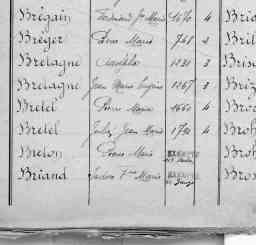 Brégain Ferdinand Jn Marie 1470 4 Brio
Bréger Pierre Marie 748 2 Bril
Bretagne 1231 3 Bris
Bretagne Jean Marie Eugène 1267 3 Briz
Bretel Pierre Marie 1660 4 Bro
Bretel Jules Jean Marie 1792 4 Broh
Breton Pierre Marie EXEMPTÉ Broh
Briand Isidore Fcs Marie EXEMPTÉ Bros